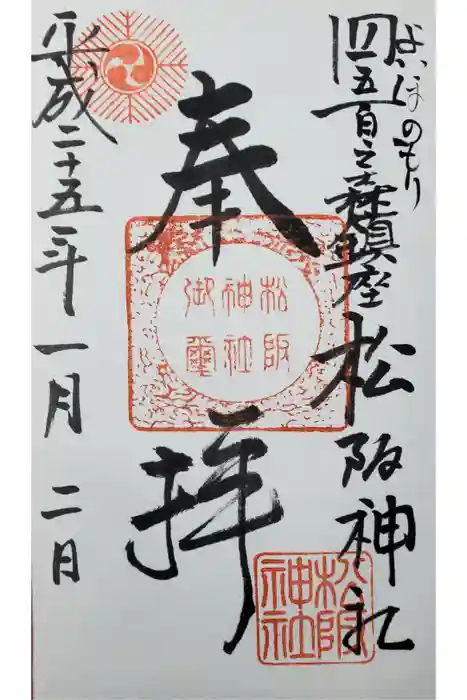 よいほのもり
四五百之森鎮座 松阪神社
奉拝
松阪
神社
御璽
松阪
神社
平成二十五年一月二日